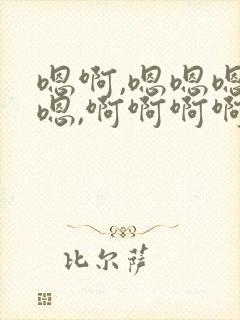 嗯啊,嗯嗯嗯
嗯,啊啊啊啊
比尔萨